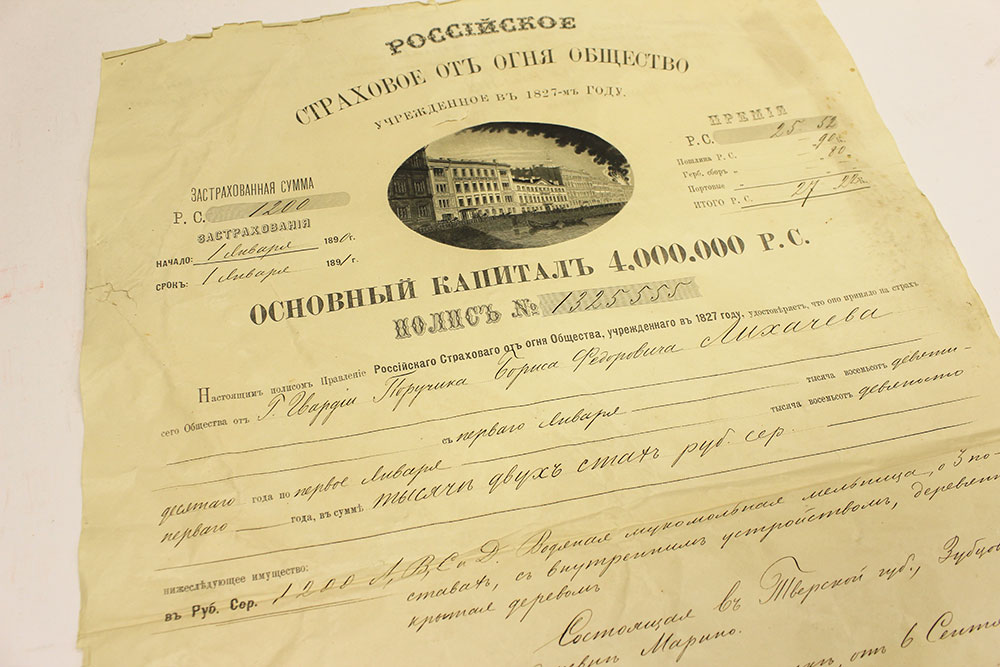 РОССІЙСКОЕ
СТРАХОВОЕ ОТЪ ОГНЯ ОБЩЕСТВО
УЧРЕЖДЕННОЕ ВЪ 1827-мъ ГОДУ.
ЗАСТРАХОВАННАЯ СУММА
Р. С. 1200
ЗАСТРАХОВАНІЯ
НАЧАЛО: 1 Января 1890 г.
СРОКЪ: 1 Января 1891 г.
ПРЕМІЯ
Р. С. 25. 52
Пошлина Р. С. 90
Герб. сборъ „ 80
Портовые „
ИТОГО Р. С. 27 22
ОСНОВНЫЙ КАПИТАЛЪ 4.000.000 Р. С.
ПОЛИСЪ № 1325555
Настоящимъ полисомъ Правленіе Россійскаго Страховаго отъ огня Общества, учрежденнаго въ 1827 году, удостовѣряетъ, что оно приняло на страхъ
сего Общества отъ Г. Гвардіи Поручика Бориса Федоровича Лихачева
съ перваго Января тысяча восемьсотъ девяти-
десятаго года по первое Января тысяча восемьсотъ девяносто
перваго года, въ суммѣ тысячи двухъ стахъ руб. сер.
нижеслѣдующее имущество:
въ Руб. Сер. 1200 А, В, С и D. Водяная мукомольная мельница, о 3 по-
ставахъ, съ внутреннимъ устройствомъ, деревянн
крытая деревомъ
Состоящая въ Тверской губ., Зубцов
Марино.
отъ 6 Сентя